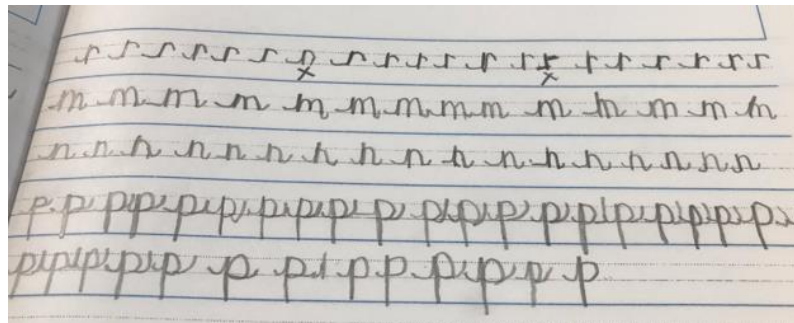 r r r r r r r r r r r r r r r r r r r r
x x
m m m m m m m m m m m m m m
n n n n n n n n n n n n n n n n n
p p p p p p p p p p p p p p p p p p p p
p p p p p p p p p p p p p